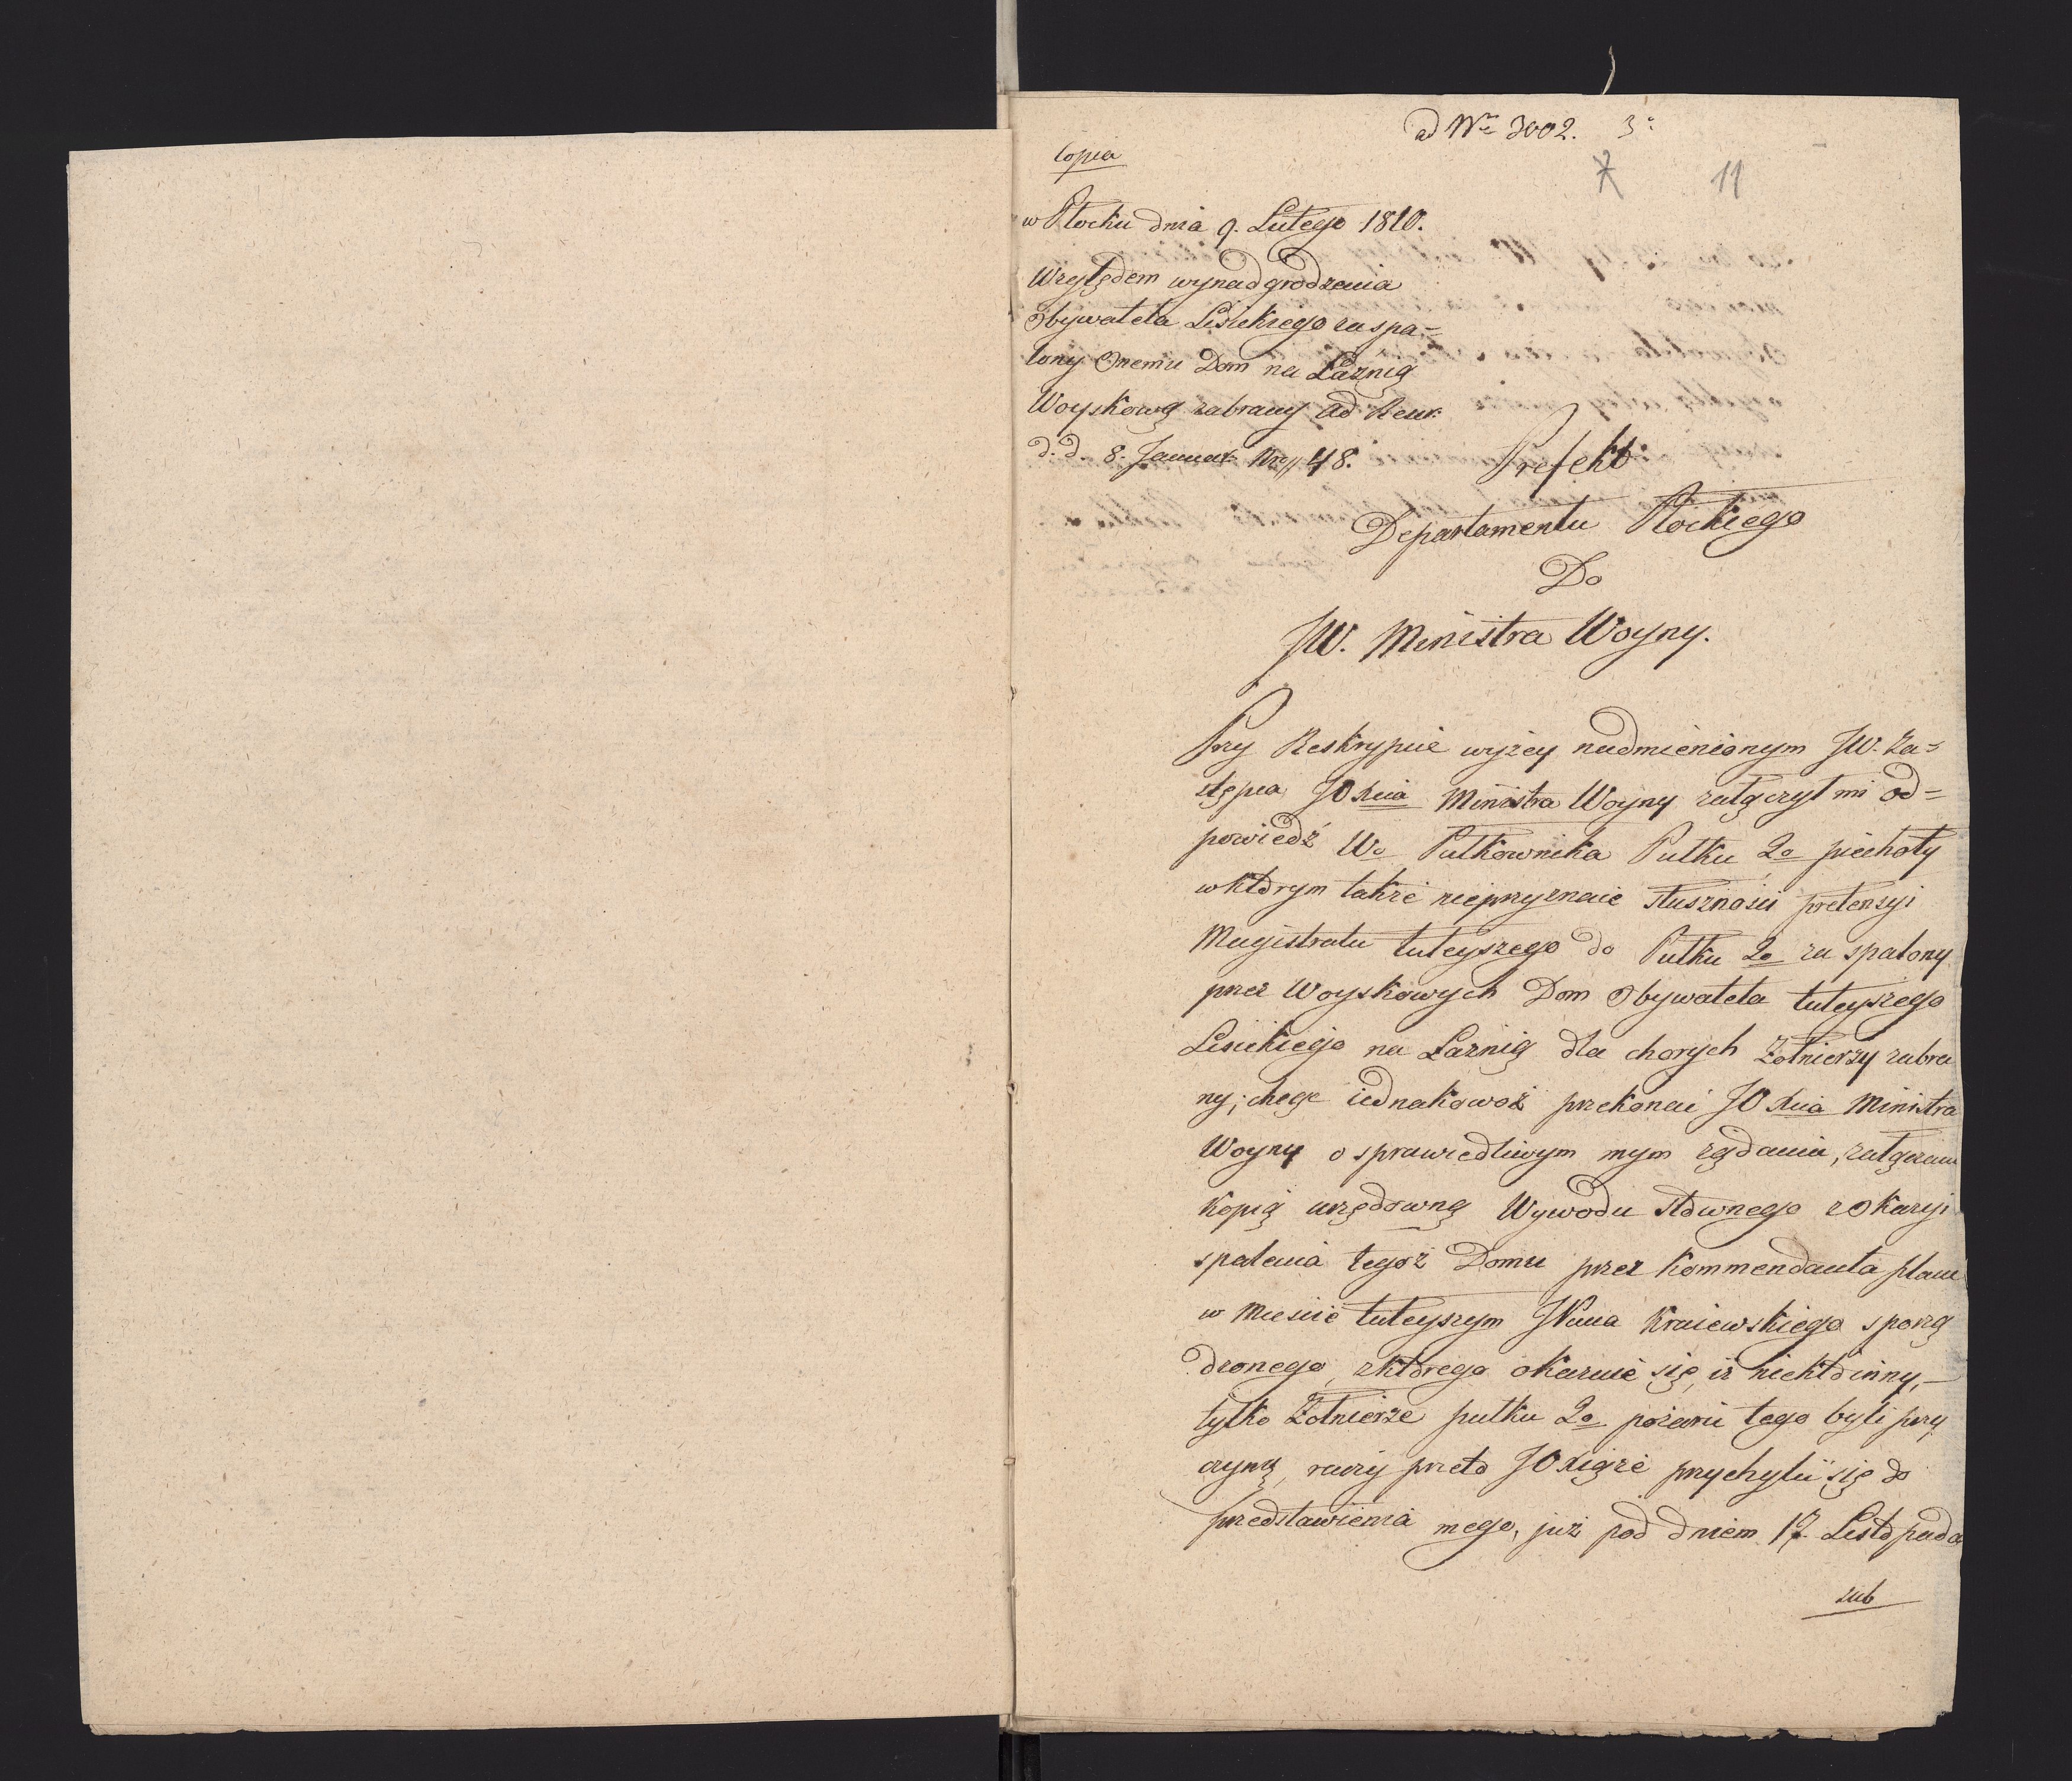 ad Nro 3002. 3o
Copia
7 11
w Płocku dnia 9. Lutego 1810.
Względem wynadgrodzenia
Obywatela Lisickiego za spa=
lony Onemu Dom na Łaźnią
Woyskową zabrany ad Rescr.
d. d. 8. Januar. Nro 48.
Prefekt
Departamentu Płockiego
Do
JW. Ministra Woyny.
Przy Reskrypcie wyżey nadmienionym JW. Za=
stępca JO Xcia Ministra Woyny załączył mi od=
powiedź Wo Pułkownika Pułku 2o piechoty
w którym także nieprzyznaie słuszności pretensyi
Magistratu tuteyszego do Pułku 2o za spalony
przez Woyskowych Dom Obywatela tuteyszego
Lisickiego na Łaźnią dla chorych Żołnierzy zabra
ny; chcąc iednakowoż przekonać JO Xcia Ministra
Woyny o sprawiedliwym mym żądaniu, załączam
Kopią urzędowną Wywodu słownego z Okazyi
spalenia tegoż Domu przez Kommendanta placu
w Mieście tuteyszym JPana Kraiewskiego sporzą
dzonego, z którego okazuie się, iż nie kto inny,
tylko Żołnierze pułku 2o pożaru tego byli przy
czyną, raczy przeto JO Xiąże przychylić się do
przedstawienia mego, już pod dniem 17. Listopada
zab